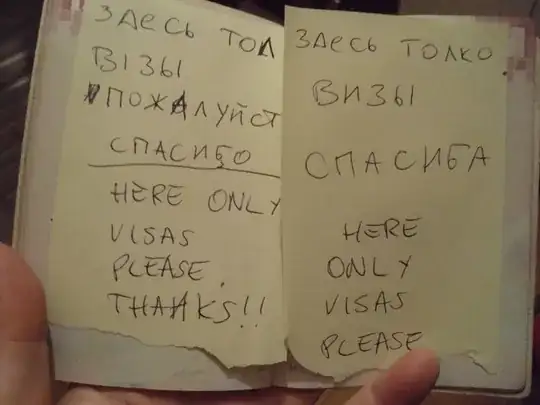 ЗДЕСЬ ТОЛ
ВІЗЫ
ПОЖАЛУЙСТ
СПАСИБО
HERE ONLY
VISAS
PLEASE.
THANKS!!
ЗДЕСЬ ТОЛКО
ВИЗЫ
СПАСИБА
HERE
ONLY
VISAS
PLEASE